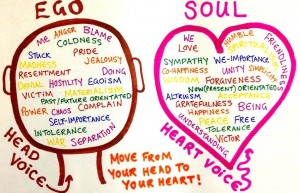 EGO
ME ANGER BLAME
COLDNESS
STUCK PRIDE
MADNESS JEALOUSY
RESENTMENT DOING
DENIAL HOSTILITY EGOISM
VICTIM MATERIALISM
PAST/FUTURE ORIENTATED
POWER CHAOS COMPLAIN
SELF-IMPORTANCE
INTOLERANCE
WAR SEPARATION
HEAD VOICE
SOUL
WE HUMBLE FRIENDLINESS
LOVE SPIRITUALISM
SYMPATHY WE-IMPORTANCE
CO-HAPPINESS UNITY
WISDOM FORGIVENESS
NOW (PRESENT) ORIENTATED
ALTRUISM ACCEPTANCE
GRATEFULNESS
HAPPINESS BEING
PEACE FREE
TOLERANCE
UNDERSTANDING VICTOR
HEART VOICE
MOVE FROM
YOUR HEAD TO
YOUR HEART!